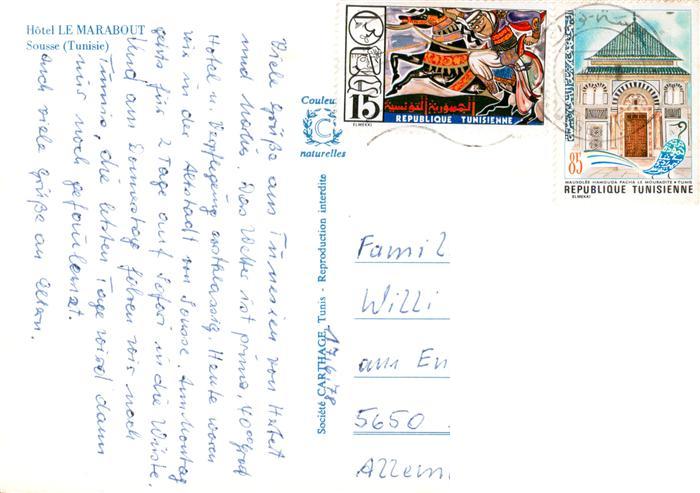 Hôtel LE MARABOUT
Sousse (Tunisie)
Viele Grüße aus Tunesien von Herbert
und Maria. Das Wetter ist prima, 40 Grad
Hotel u. Verpflegung erstklassig. Heute waren
wir in der Altstadt von Sousse. Am Montag
geht's für 2 Tage auf Safari in die Wüste.
Und am Donnerstag fahren wir noch
Tunis, die letzten Tage wird dann
nur noch gefaulenzt.
Auch viele Grüße an Eltern.
Couleurs
C
naturelles
Société CARTHAGE, Tunis - Reproduction interdite
17.6.78
15
الجمهورية التونسية
REPUBLIQUE TUNISIENNE
ELMEKKI
85
MAUSOLÉE HAMOUDA PACHA LE MOURADITE • TUNIS
REPUBLIQUE TUNISIENNE
ELMEKKI
Famil
Willi
am En
5650
Allem